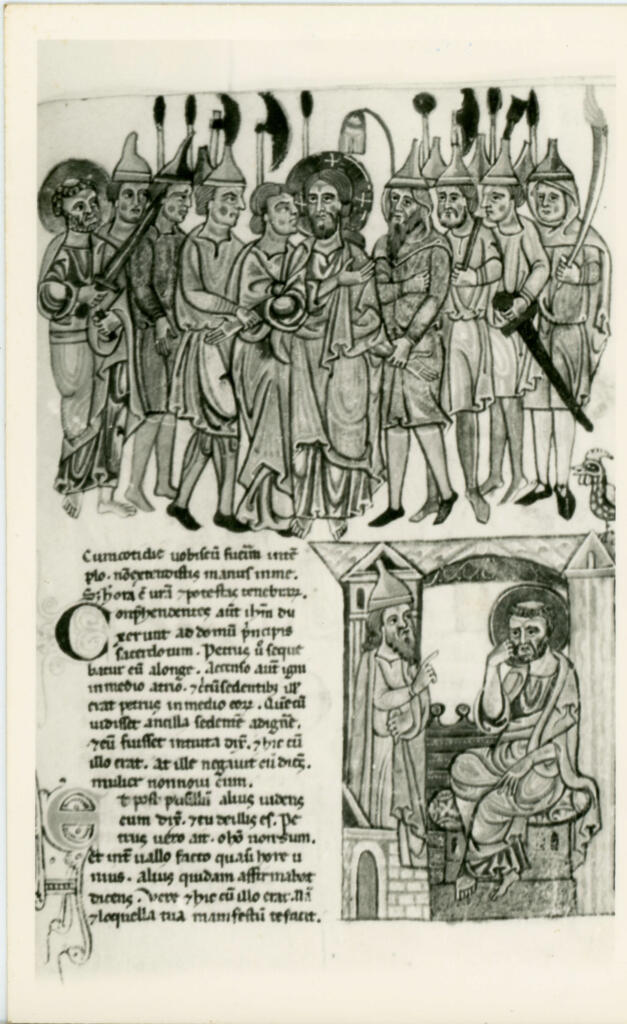 Cum cotidie uobiscũ fuerim in tẽ
plo. nõ extendistis manus in me.
S; h̃ ora ẽ urã ⁊ potestas tenebrar̃.
Conp̃hendentes aũt ih̃m du
xerunt ad domũ p̃ncipis
sacerdotum. Petrus ũ seque
batur eũ a longe. Accenso aũt igni
in medio atrio. ⁊ c̃cũsedentib;
erat petrus in medio eoꝝ. Quẽ cũ
uidisset ancilla sedentẽ ad ignẽ.
⁊ eũ fuisset intuita dix̃. ⁊ hic cũ
illo erat. At ille negauit eũ dicẽs.
mulier non noui eum.
Et post pusillũ alius uidens
eum dix̃. ⁊ tu de illis es. Pe
trus uero ait. o hõ non sum.
Et int̃uallo facto quasi hore u
nius. alius quidam affirmabat
dicens. Vere ⁊ hic cũ illo erat. Nã
⁊ loquella tua manifestũ te facit.